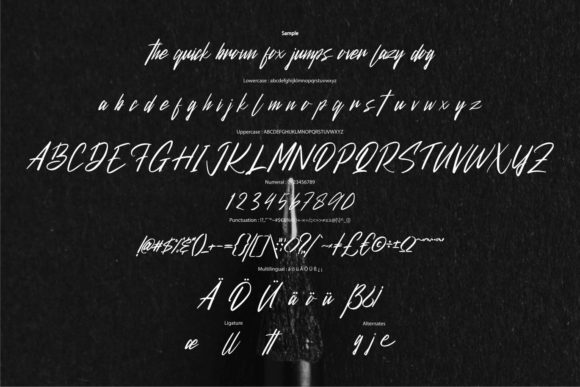 Sample
the quick brown fox jumps over lazy dog
Lowercase : abcdefghijklmnopqrstuvwxyz
a b c d e f g h i j k l m n o p q r s t u v w x y z
Uppercase : ABCDEFGHIJKLMNOPQRSTUVWXYZ
ABCDEFGHIJKLMNOPQRSTUVWXYZ
Numeral : 0123456789
1234567890
Punctuation :
Multilingual : ä ö ü Ä Ö Ü ß ¿ ¡
Ä Ö Ü ä ö ü ß¿¡
Ligature
Alternates
æ ll tt
g j e